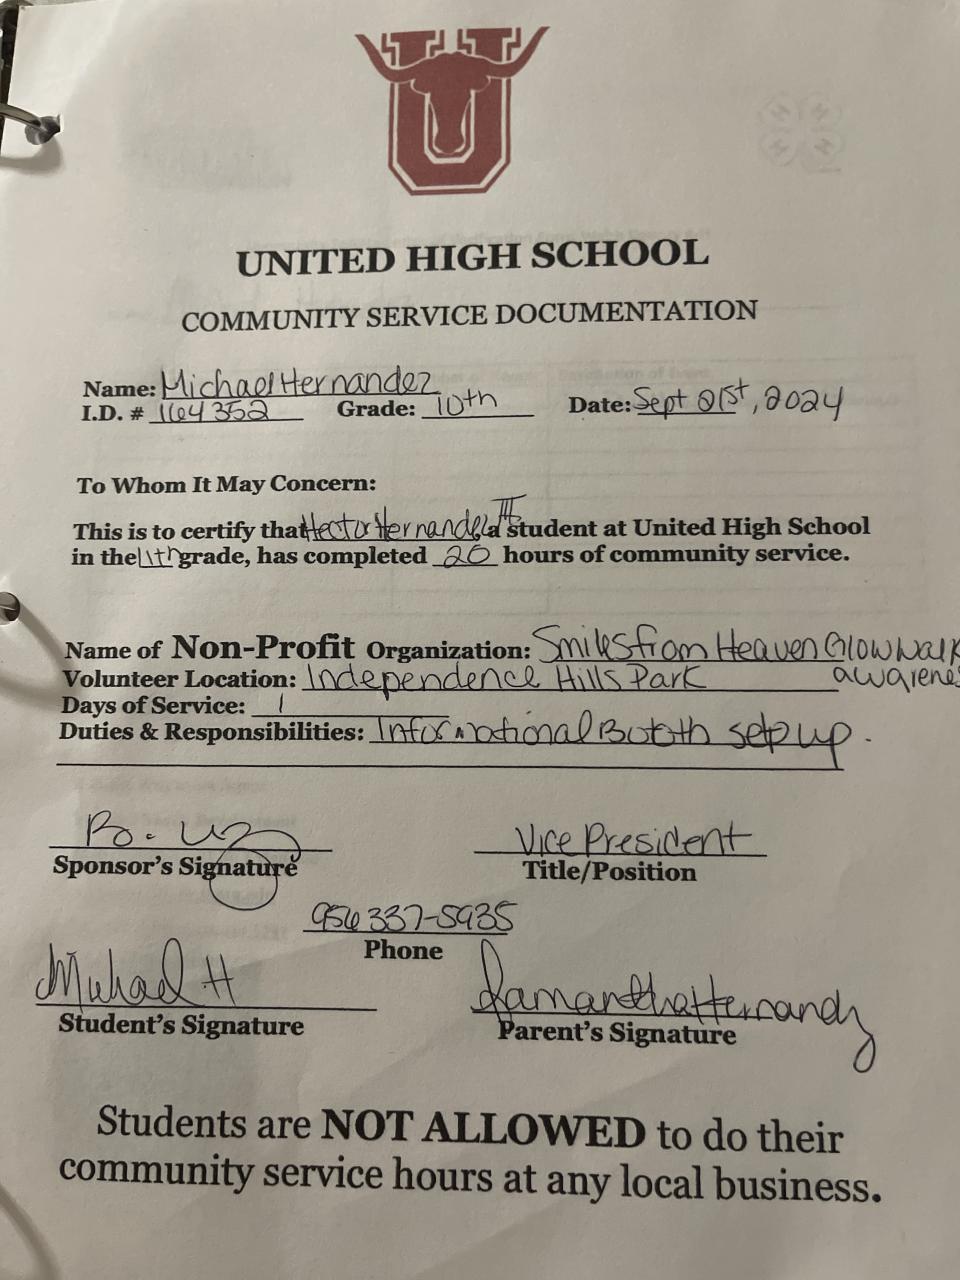 U
UNITED HIGH SCHOOL
COMMUNITY SERVICE DOCUMENTATION
Name: Michael Hernandez
I.D. # 164352 Grade: 10th Date: Sept 21st, 2024
To Whom It May Concern:
This is to certify that Hector Hernandez III a student at United High School
in the 11th grade, has completed 20 hours of community service.
Name of Non-Profit Organization: Smiles from Heaven Glow Walk
Volunteer Location: Independence Hills Park awarenes
Days of Service: 1
Duties & Responsibilities: Informational Booth set up.
B. Uz Vice President
Sponsor's Signature Title/Position
956 337-5935
Phone
Michael H Samantha Hernandz
Student's Signature Parent's Signature
Students are NOT ALLOWED to do their
community service hours at any local business.